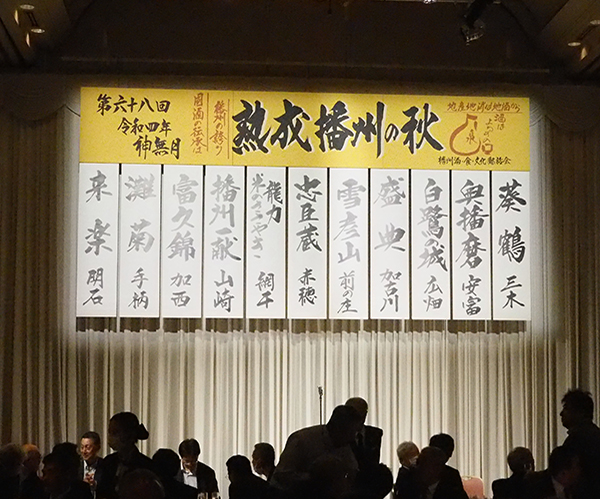 第六十八回
令和四年
神無月
播州の誇り
国酒の伝承は
熟成播州の秋
地産地消は地酒から
播州酒・食・文化郷総会
葵鶴 三木
奥播磨 安富
白鷺の城 広畑
盛典 加古川
雪彦山 前の庄
忠臣蔵 赤穂
龍力 米のささやき 網干
播州一献 山崎
富久錦 加西
灘菊 手柄
来楽 明石